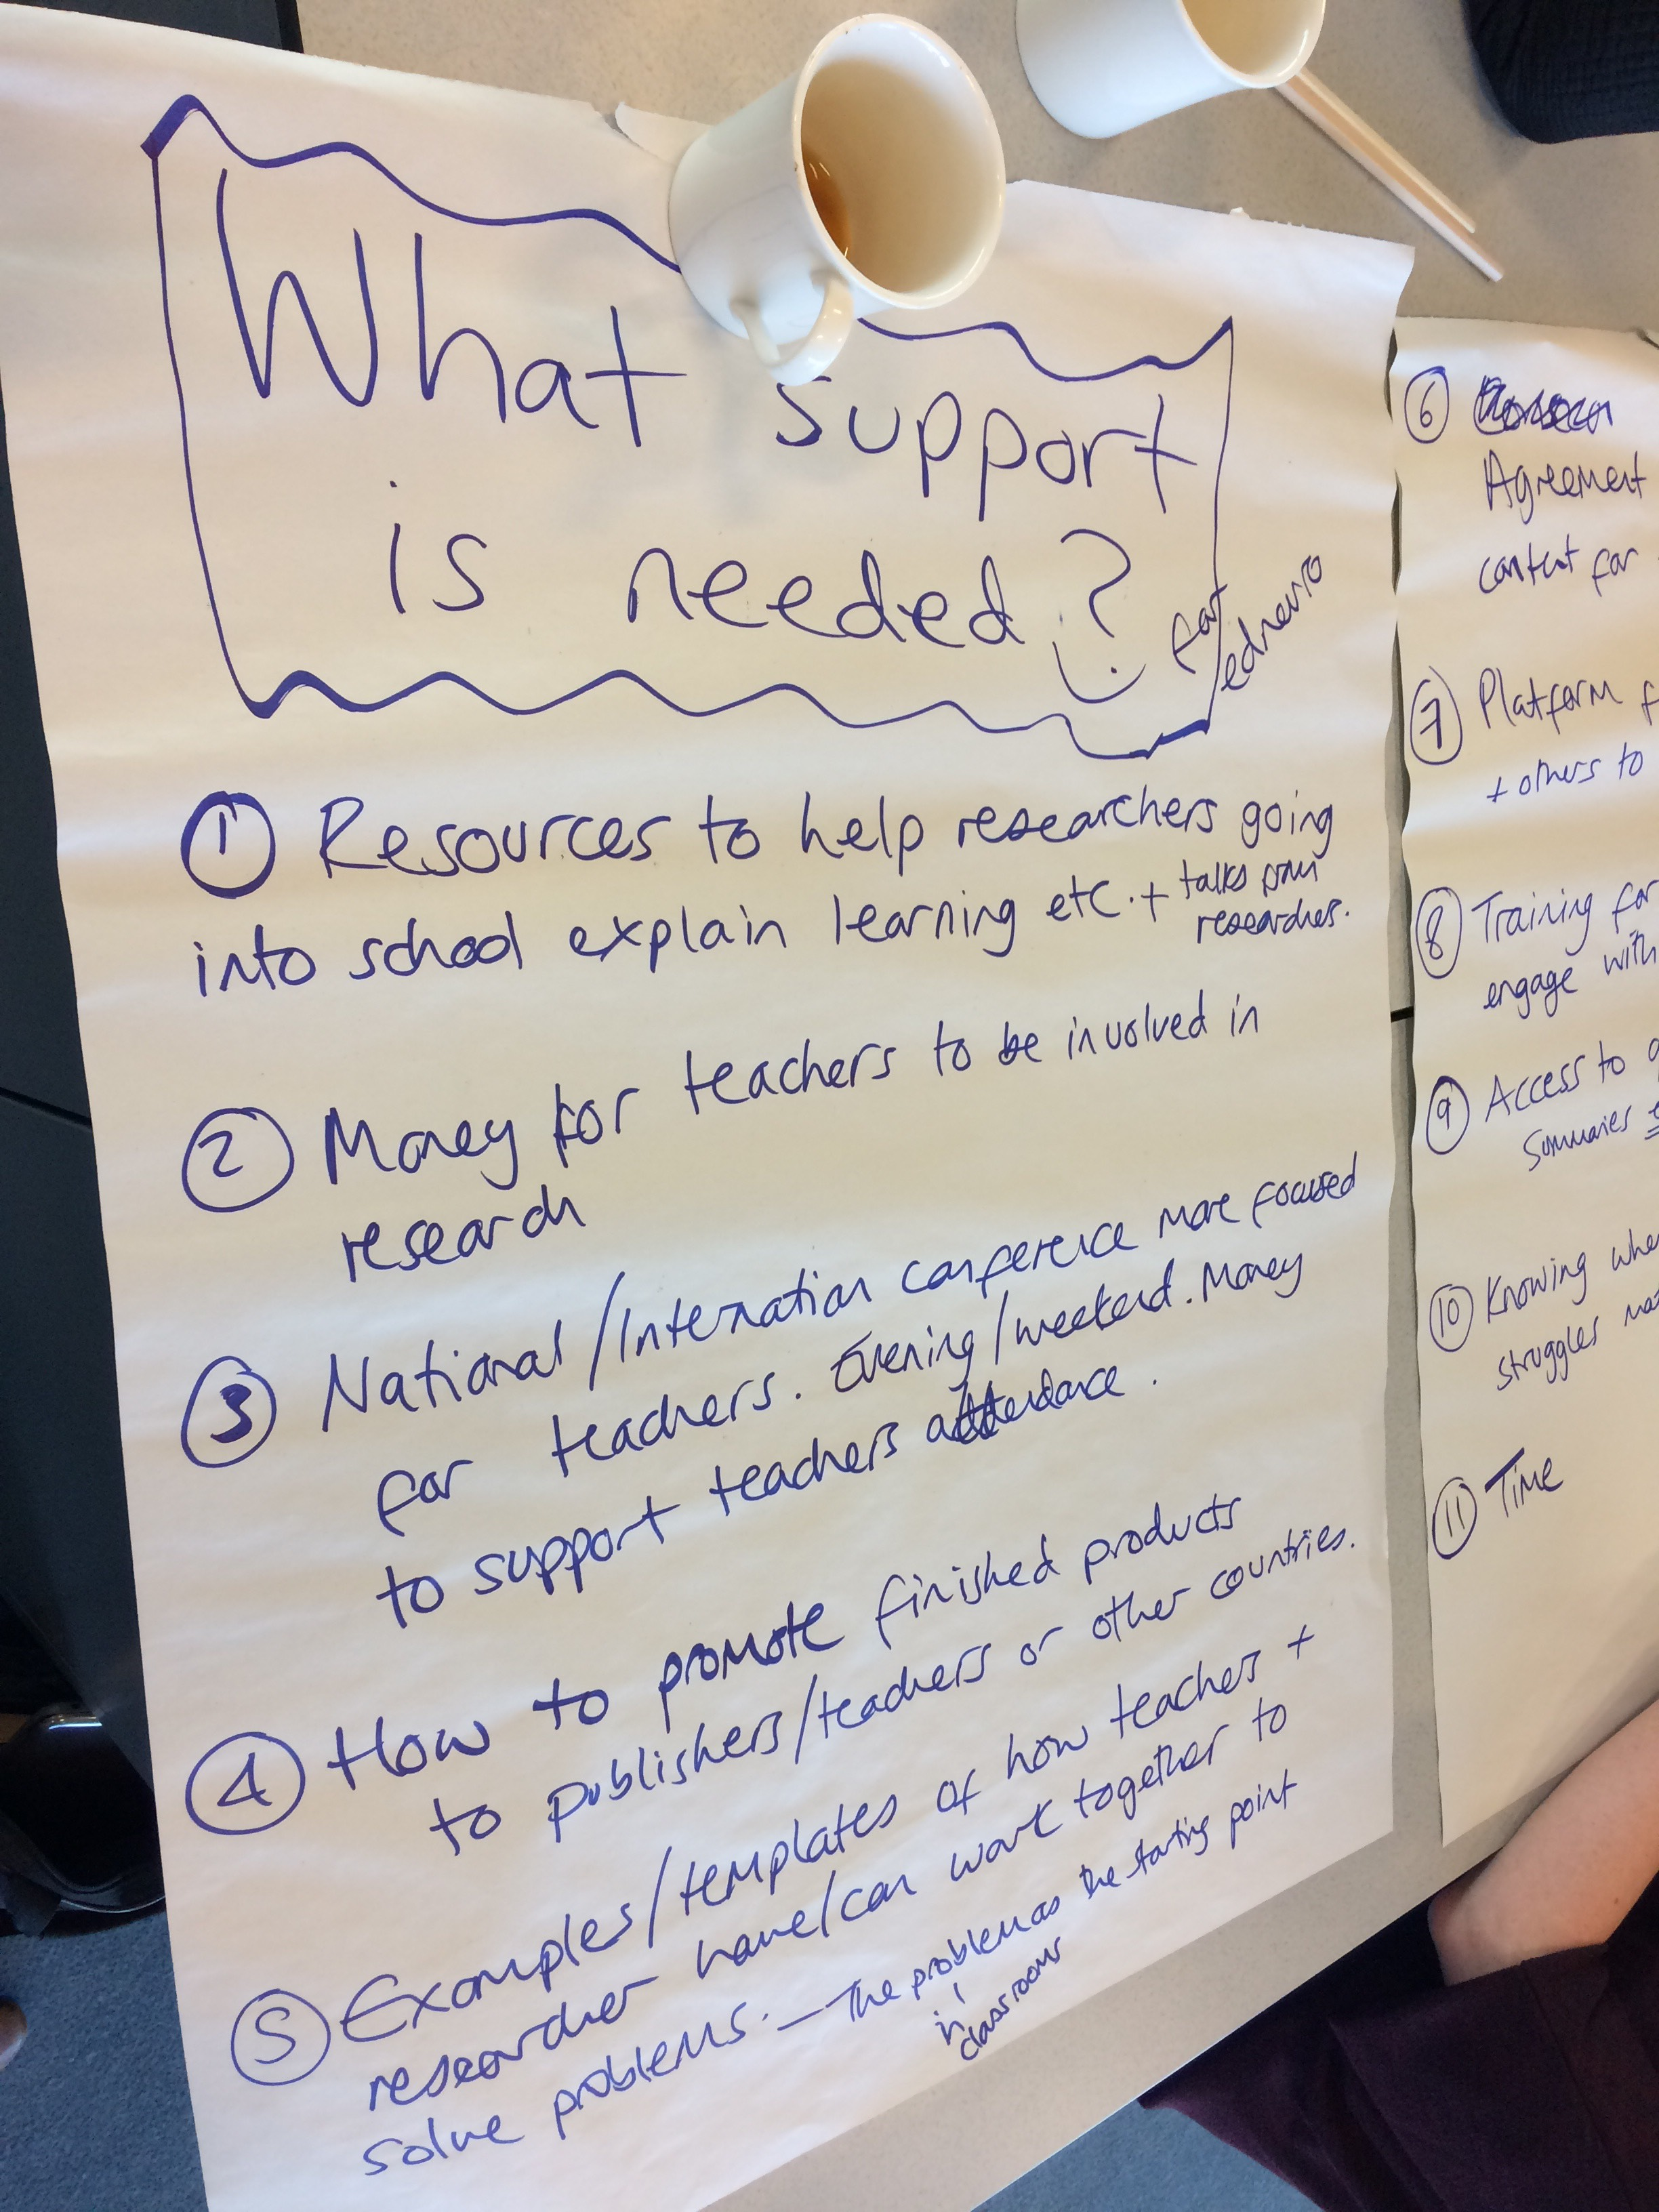 What support
is needed?
for
edneuro
① Resources to help researchers going
into school explain learning etc. + talks from
researchers.
② Money for teachers to be involved in
research
③ National/Internation conference more focused
for teachers. Evening/weekend. Money
to support teachers attendance.
④ How to promote finished products
to publishers/teachers or other countries.
⑤ Examples/templates of how teachers +
researcher have/can work together to
solve problems. — The problem as the starting point
in
classrooms
⑥
Agreement
content for
⑦ Platform f
+ others to
⑧ Training for
engage with
⑨ Access to
Summaries
⑩ Knowing whe
struggles
⑪ Time